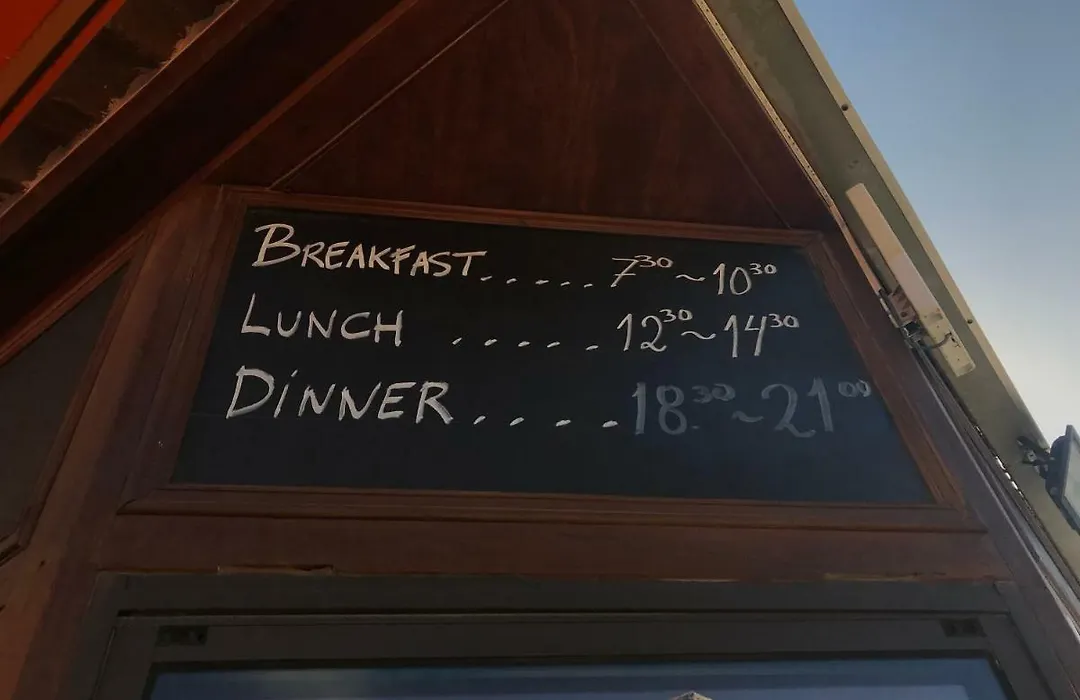 BREAKFAST...... 7³⁰~10³⁰
LUNCH ..... 12³⁰~14³⁰
DiNNER..... 18.³⁰~21⁰⁰